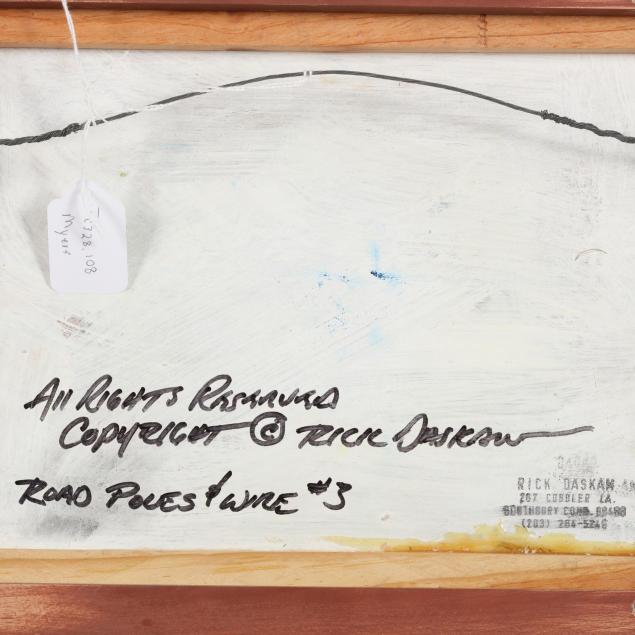 T328.108
Myers
All Rights Reserved
Copyright © Rick Daskam
Road Poles & Wire #3
RICK DASKAM
267 COBBLER LA.
SOUTHBURY CONN. 06488
(203) 264-5246